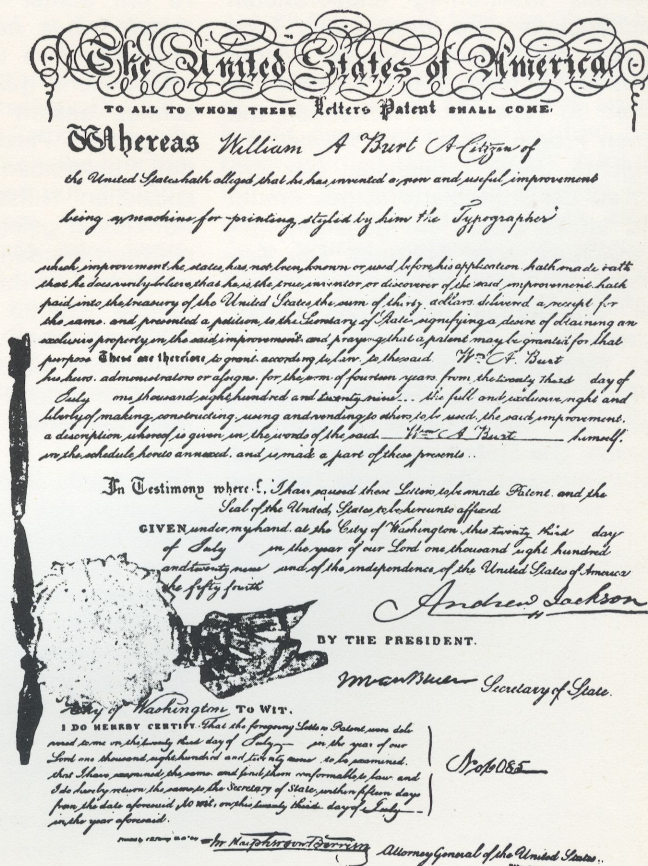 The United States of America
TO ALL TO WHOM THESE Letters Patent SHALL COME:
Whereas William A Burt A Citizen of
the United States hath alleged that he has invented a new and useful improvement
being a machine for printing, styled by him the "Typographer"
which improvement he states, has not been known or used before his application hath made oath
that he does verily believe that he is the true inventor or discoverer of the said improvement hath
paid into the treasury of the United States the sum of thirty dollars. delivered a receipt for
the same. and presented a petition to the Secretary of State signifying a desire of obtaining an
exclusive property in the said improvement and praying that a patent may be granted for that
purpose These are therefore to grant. according to law. to the said Wm. A. Burt
his heirs. administrators or assigns. for the term of fourteen years. from the twenty third day of
July one thousand eight hundred and twenty nine... the full and exclusive right and
liberty of making, constructing, using and vending to others to be used, the said improvement.
a description whereof is given in the words of the said Wm A Burt himself.
in the schedule hereto annexed. and is made a part of these presents..
In Testimony I have caused these Letters to be made Patent. and the
Seal of the United States to be hereunto affixed
GIVEN under my hand. at the City of Washington this twenty third day
of July in the year of our Lord one thousand eight hundred
and twenty nine and of the independence of the United States of America
the fifty fourth
Andrew Jackson
BY THE PRESIDENT.
M Van Buren Secretary of State.
City of Washington TO WIT.
I DO HEREBY CERTIFY. That the foregoing Letters Patent, were deli
vered to me on the twenty third day of July in the year of our
Lord one thousand eight hundred and twenty nine to be examined.
that I have examined the same. and find them conformable to law. and
I do hereby return the same, to the Secretary of State, within fifteen days
from the date aforesaid, to wit, on this twenty third day of July
in the year aforesaid.
Macpherson Berrien Attorney General of the United States.